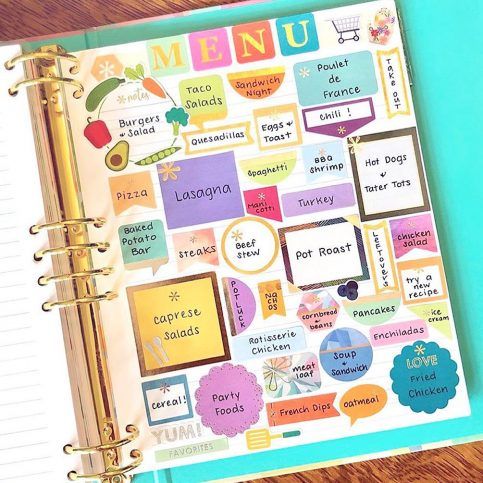 MENU
notes
Burgers
+
Salad
Taco
Salads
Sandwich
Night
Poulet
de
France
Take out
Quesadillas
Eggs
+
Toast
Chili !
Pizza
Lasagna
Spaghetti
BBQ
Shrimp
Hot Dogs
+
Tater Tots
Mani
cotti
Turkey
Baked
Potato
Bar
Steaks
Beef
Stew
Pot Roast
Leftovers
chicken
salad
caprese
Salads
Potluck
Na
ch
os
cornbread
+
beans
Pancakes
try a
new
recipe
ice
cream
Rotisserie
Chicken
Enchiladas
cereal!
Party
Foods
meat
loaf
Soup
+
Sandwich
LOVE
Fried
Chicken
French Dips
oatmeal
YUM!
FAVORITES